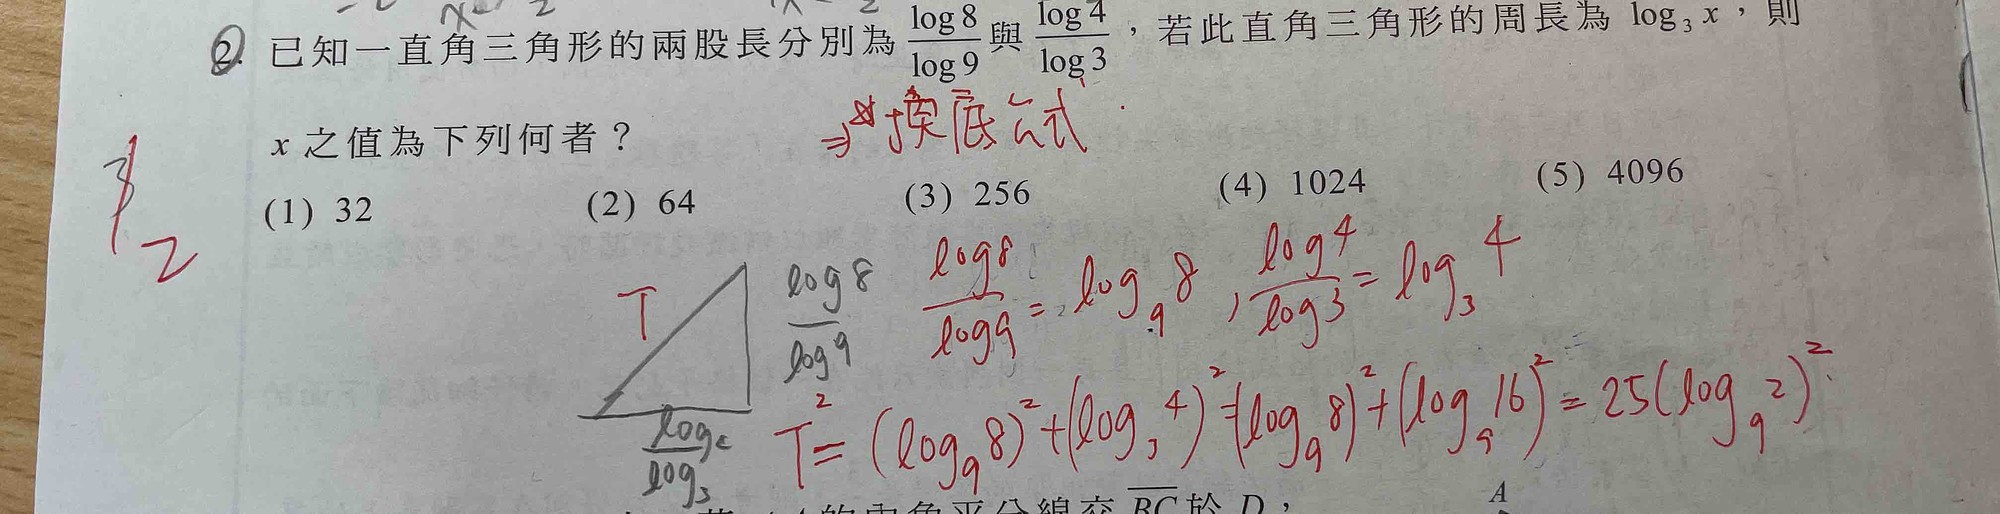 2. 已知一直角三角形的兩股長分別為 log 8 / log 9 與 log 4 / log 3，若此直角三角形的周長為 log₃ x，則
x 之值為下列何者？
⇒ 換底公式
(1) 32 (2) 64 (3) 256 (4) 1024 (5) 4096
2
T
log 8 / log 9
log 8 / log 9 = log₉ 8 , log 4 / log 3 = log₃ 4
T² = (log₉ 8)² + (log₃ 4)² = (log₉ 8)² + (log₉ 16)² = 25(log₉ 2)²
的內角平分線交 BC 於 D，
A